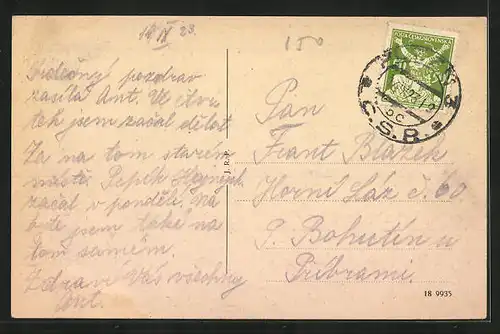 14 IX 23
150
Srdečný pozdrav
zasílá Ant. Ve čtvr
tek jsem začal dělat
Zá na tom starém
místě. Pepík
začal v pondělí, na
bytě jsem také na
tom samém.
Zdraví Vás všechny
Ant.
J. R. P.
POŠTA ČESKOSLOVENSKÁ
Č.S.R.
Pán
Frant Blažek
Horní Láz č. 60
P. Bohutín u
Příbrami.
18 9935